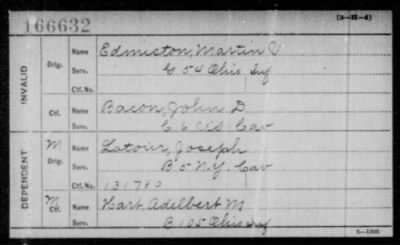 166632
(3-31-6)
INVALID
Orig.
Name Edmiston, Martin V
Serv. G 54 Ohio Inf
Ctf. No.
Ctf.
Name Bacon, John D.
Serv. C 6 Cav
DEPENDENT
M
Orig.
Name Latour, Joseph
Serv. B 5 N.Y. Cav
Ctf. No. 131780
M
Ctf.
Name Hart, Adelbert M
Serv. B 105 Ohio Inf